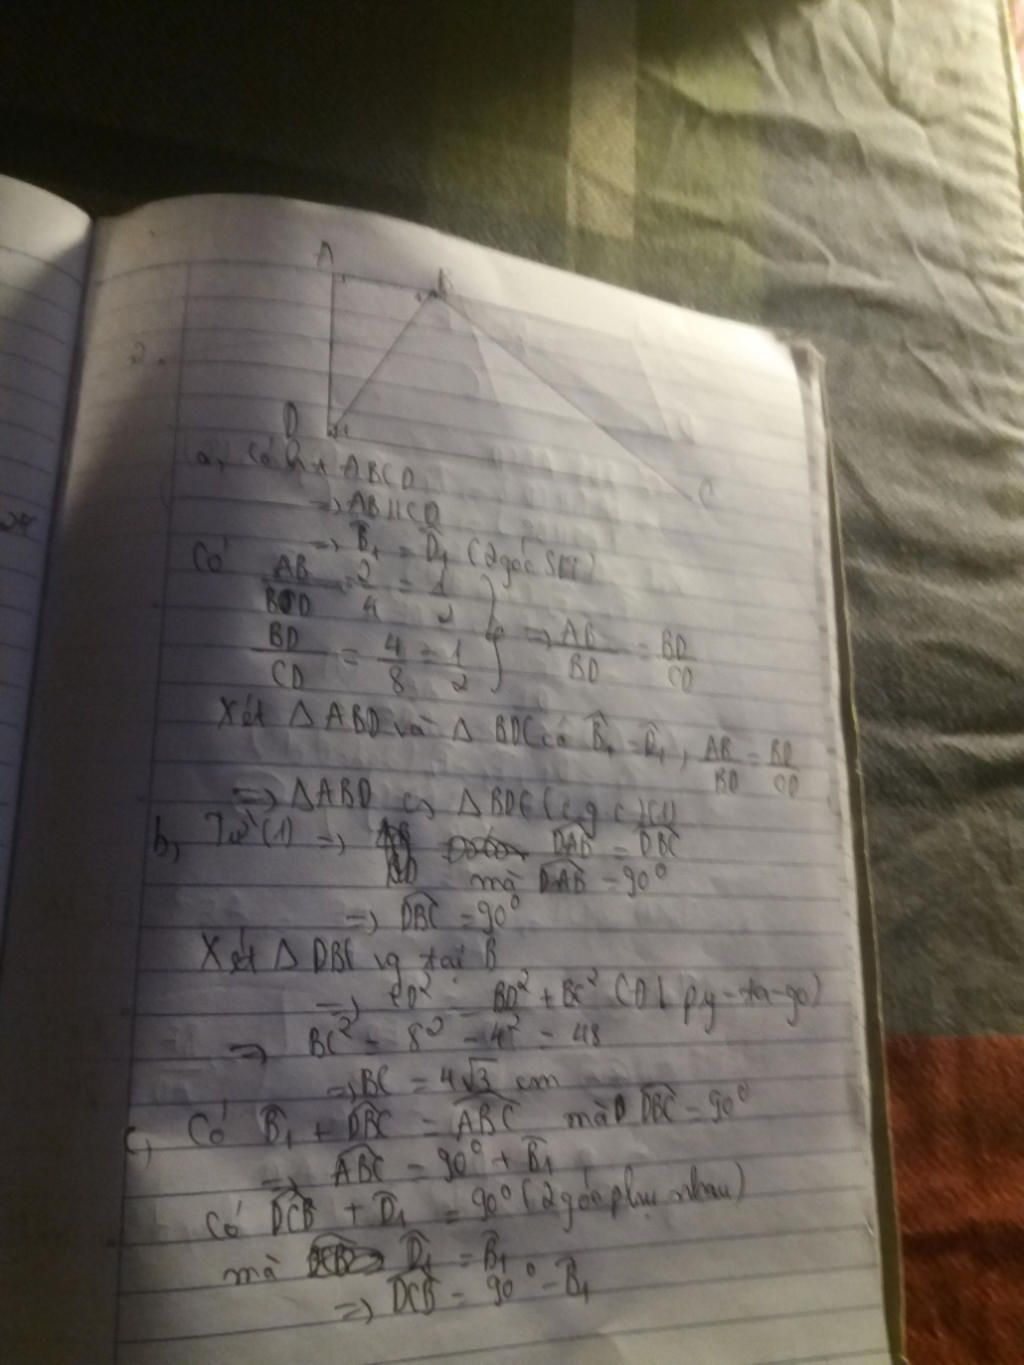 A
B
2.
D
C
a, Có ht ABCD
=> AB//CD
=> B̂₁ = D̂₁ (2 góc SLT)
Có AB/BD = 2/4 = 1/2
BD/CD = 4/8 = 1/2 } => AB/BD = BD/CD
Xét △ ABD và △ BDC có B̂₁ = D̂₁, AB/BD = BD/CD
=> △ABD ∽ △BDC (c.g.c) (1)
b, Từ (1) => DAB = DBC
mà DAB = 90⁰
=> DBC = 90⁰
Xét △ DBC vg tại B
=> CD² = BD² + BC² (ĐL py-ta-go)
=> BC² = 8² - 4² = 48
=> BC = 4√3 cm
c, Có B̂₁ + DBC = ABC mà DBC = 90⁰
=> ABC = 90⁰ + B̂₁
Có DCB + D̂₁ = 90⁰ (2 góc phụ nhau)
mà D̂₁ = B̂₁
=> DCB = 90⁰ - B̂₁